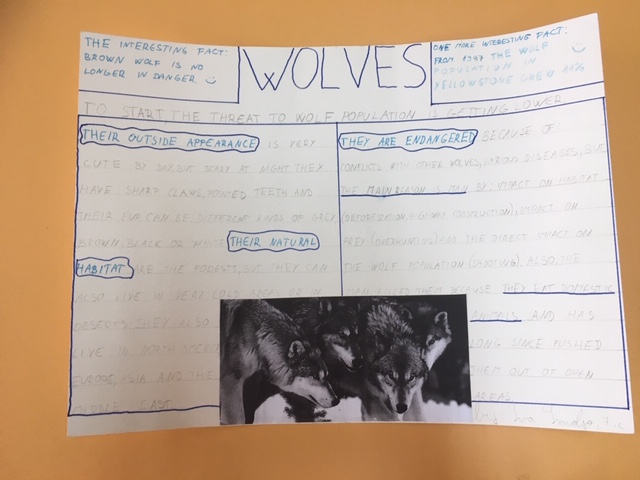 THE INTERESTING FACT:
BROWN WOLF IS NO
LONGER IN DANGER.
WOLVES
ONE MORE INTERESTING FACT:
FROM 1997 THE WOLF
POPULATION IN
YELLOWSTONE GREW
TO START, THE THREAT TO WOLF POPULATION IS GETTING LOWER.
THEIR OUTSIDE APPEARANCE IS VERY
CUTE BY DAY, BUT SCARY AT NIGHT. THEY
HAVE SHARP CLAWS, POINTED TEETH AND
THEIR FUR CAN BE DIFFERENT KINDS OF GREY,
BROWN, BLACK OR WHITE. THEIR NATURAL
HABITAT ARE THE FORESTS, BUT THEY CAN
ALSO LIVE IN VERY COLD AREAS OR IN
DESERTS. THEY ALSO
LIVE IN NORTH
EUROPE, ASIA AND THE
MIDDLE EAST.
THEY ARE ENDANGERED BECAUSE OF
CONFLICTS WITH OTHER WOLVES, VARIOUS DISEASES, BUT
THE MAIN REASON IS MAN BY: IMPACT ON HABITAT
(DEFORESTATION, HIGHWAY CONSTRUCTION), IMPACT ON
PREY (OVERHUNTING) AND THE DIRECT IMPACT ON
THE WOLF POPULATION (SHOOTING). ALSO, THE
MAN KILLED THEM BECAUSE THEY EAT DOMESTIC
ANIMALS AND HAS
LONG SINCE PUSHED
THEM OUT OF OPEN
AREAS.
by: 7.c